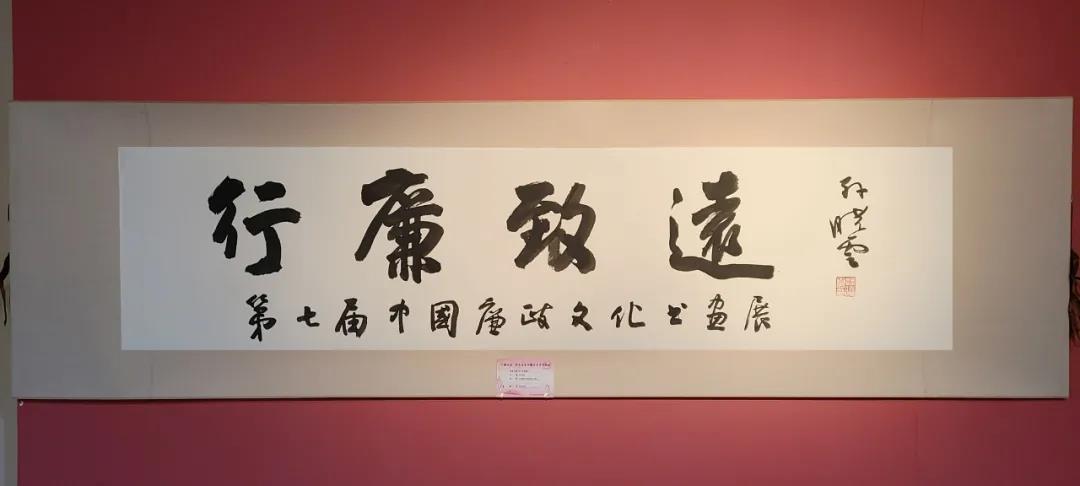 行廉致遠
第七届中國廉政文化书画展
孙晓云